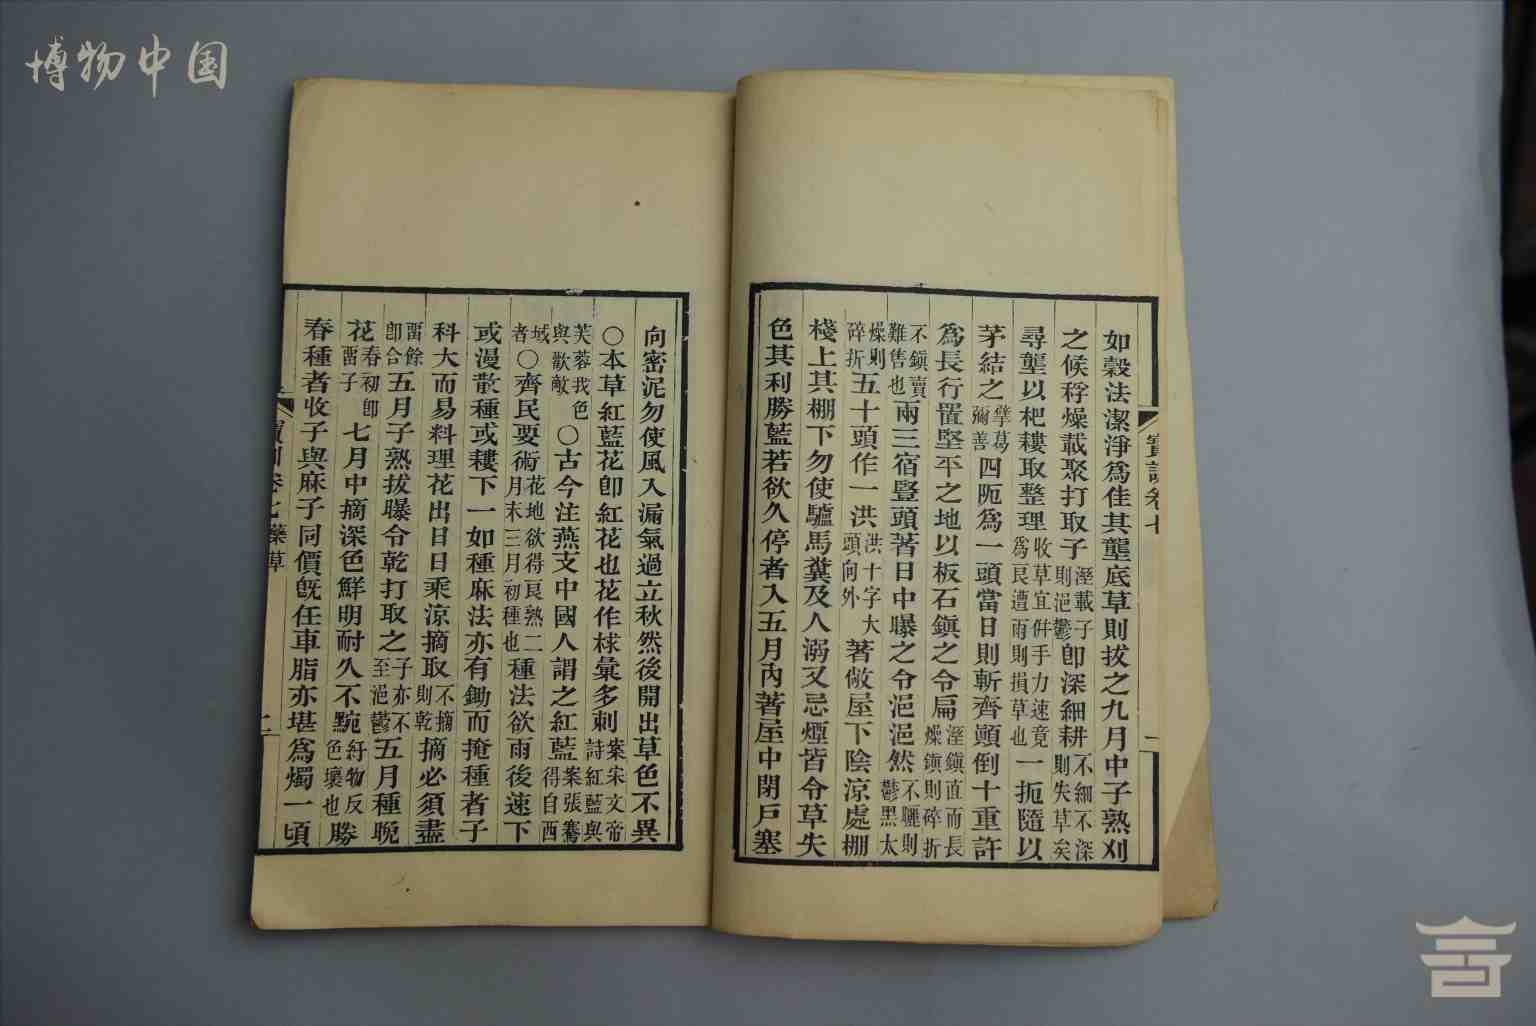 博物中国
如穀法潔淨爲佳其壟底草則拔之九月中子熟刈
之候稃燥載聚打取子溼載子則浥鬱卽深細耕不細不深則失草矣
尋壟以杷耬取整理收草宜倂手力速竟爲良遭雨則損草也一扼隨以
茅結之擘葛彌善四阨爲一頭當日則斬齊顚倒十重許
爲長行置堅平之地以板石鎭之令扁溼鎭直而長燥鎭則碎折
不鎭賣難售也兩三宿豎頭著日中曝之令浥浥然不曬則鬱黑太
燥則碎折五十頭作一洪洪十字大頭向外著敞屋下陰涼處棚
棧上其棚下勿使驢馬糞及人溺又忌煙皆令草失
色其利勝藍若欲久停者入五月內著屋中閉戶塞
寶訓卷七
一
向密泥勿使風入漏氣過立秋然後開出草色不異
○本草紅藍花卽紅花也花作梂彙多刺案宋文帝詩紅藍與
芙蓉我色與歡敵○古今注燕支中國人謂之紅藍案張騫得自西
域者○齊民要術花地欲得良熟二月末三月初種也種法欲雨後速下
或漫散種或耬下一如種麻法亦有鋤而掩種者子
科大而易料理花出日日乘涼摘取不摘則乾摘必須盡
畱餘卽合五月子熟拔曝令乾打取之子亦不至浥鬱五月種晚
花春初卽畱子七月中摘深色鮮明耐久不黦紆物反色壞也勝
春種者收子與麻子同價旣任車脂亦堪爲燭一頃
寶訓卷七 藥草
二